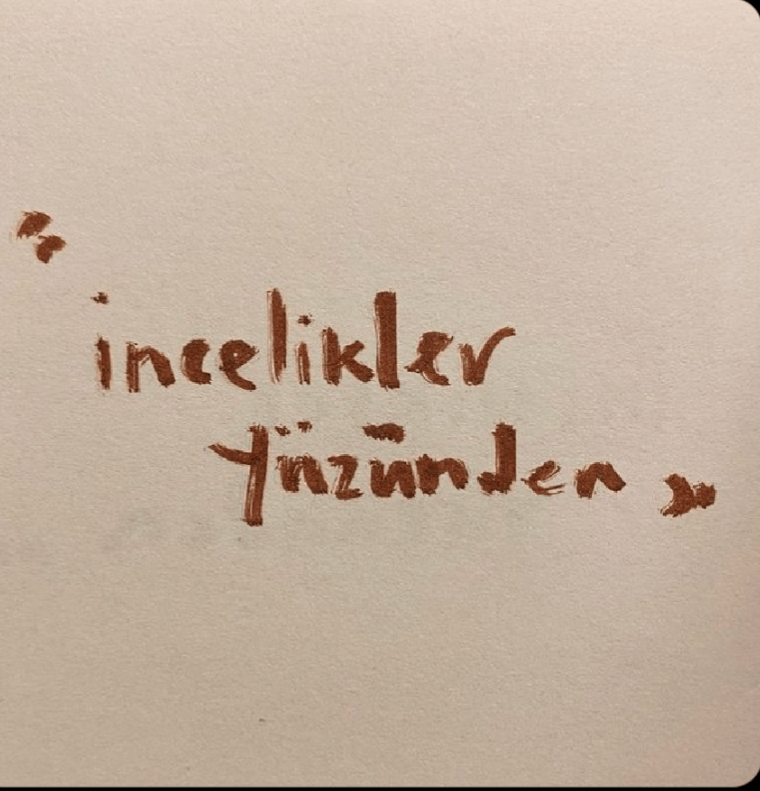 "incelikler
yüzünden"